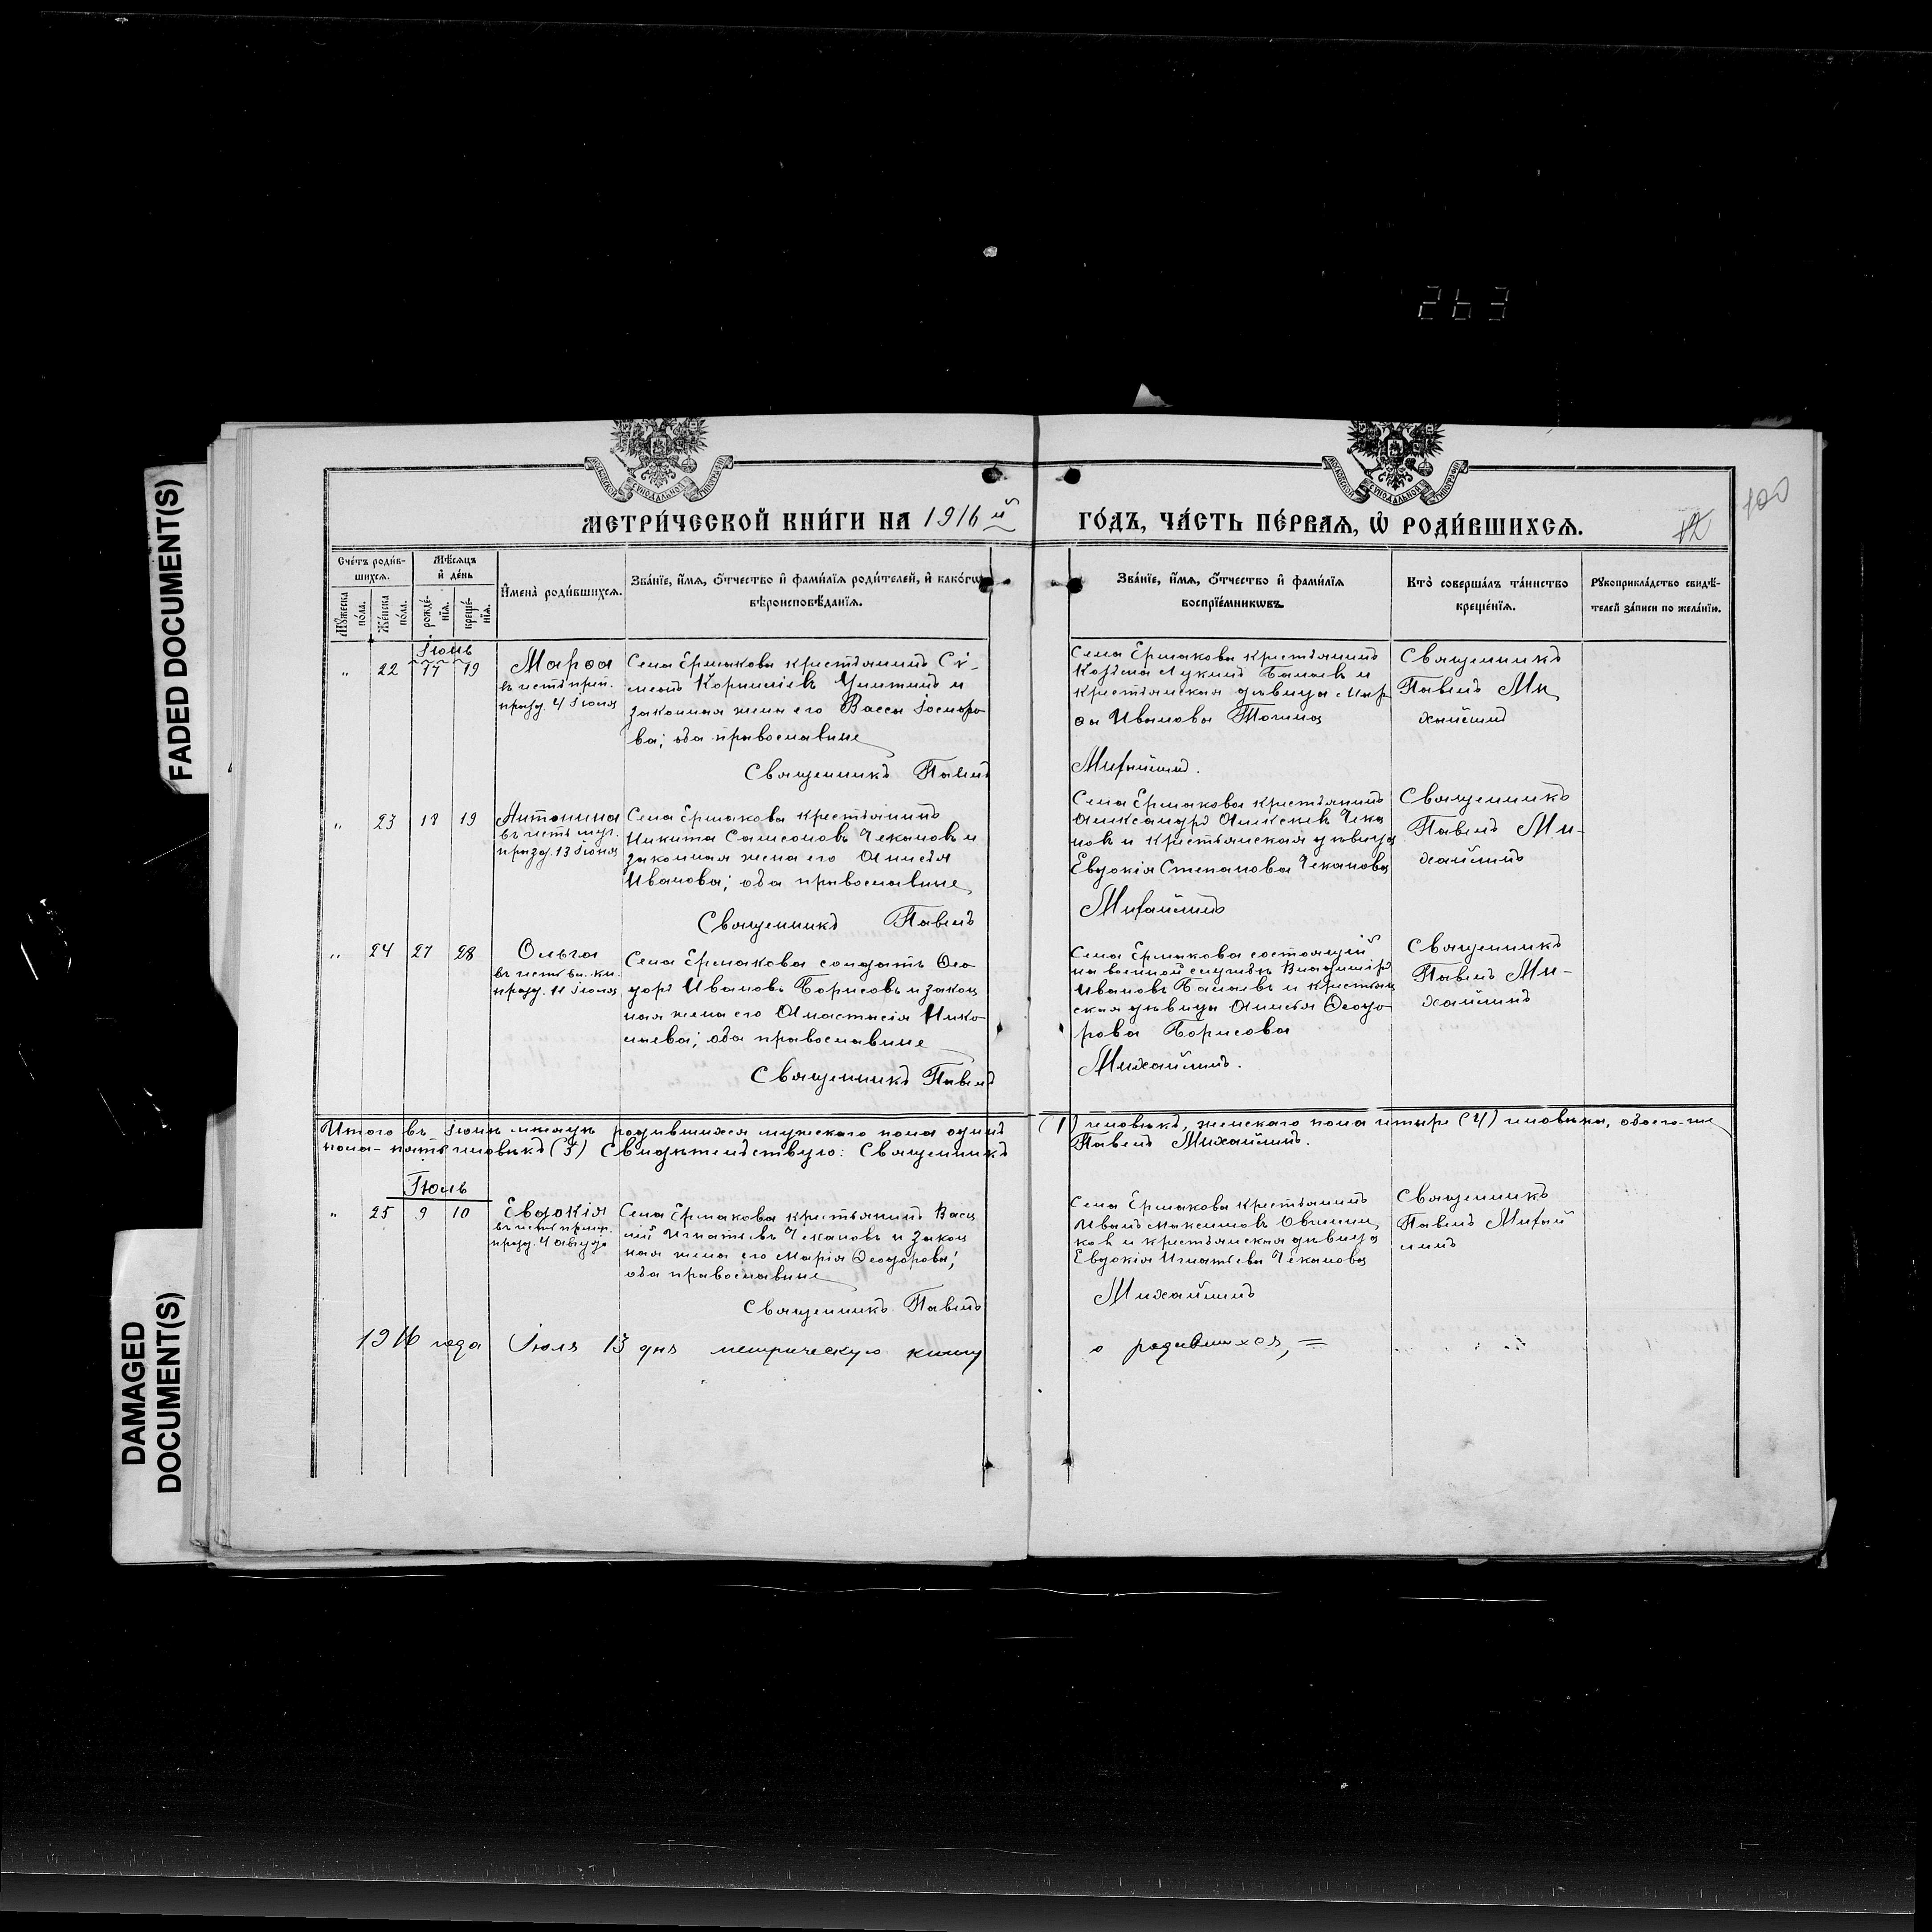 263
FADED DOCUMENT(S)
DAMAGED
DOCUMENT(S)
100
12
МЕТРИ́ЧЕСКОЙ КНИ́ГИ НА 1916 й
ГО́ДЪ, ЧА́СТЬ ПЕ́РВАЯ, Ѡ҆ РОДИ́ВШИХСЯ.
Сче́тъ роди́в-
шихся.
Мѣ́сяцъ
и҆ де́нь
Мꙋ́жеска
по́ла.
Же́нска
по́ла.
рожде́-
нїя.
креще́-
нїя.
И҆мена̀ роди́вшихся.
Зва́нїе, и҆́мя, ѻ҆́тчество и҆ фами́лїя роди́телей, и҆ како́гѡ
вѣроисповѣ́данїя.
Зва́нїе, и҆́мя, ѻ҆́тчество и҆ фами́лїя
воспрїе́мникѡвъ.
Кто̀ соверша́лъ та́инство
креще́нїя.
Рꙋкоприкла́дство свидѣ́-
телей за́писи по жела́нїю.
Іюнь
" 22 17 19
Марѳа
въ честь прп.
празд. 4 Іюня
Села Ермакова крестьянинъ Сѵ-
меонъ Корниліевъ и
законная жена его Васса
ва; оба православные
Священникъ Павелъ
Села Ермакова крестьянинъ
Козьма Лукинъ Балаевъ и
крестьянская дѣвица Мар
ѳа Иванова
Михайлинъ.
Священникъ
Павелъ Ми
хайлинъ
" 23 18 19
Антонина
въ честь муч.
празд. 13 Іюня
Села Ермакова крестьянинъ
Никита Самсоновъ Чекановъ и
законная жена его Анисья
Иванова; оба православные
Священникъ Павелъ
Села Ермакова крестьянинъ
Александръ Алексѣевъ Чека
новъ и крестьянская дѣвица
Евдокія Степанова Чеканова
Михайлинъ
Священникъ
Павелъ Ми-
хайлинъ
" 24 27 28
Ольга
въ честь вл. кн.
празд. 11 Іюля
Села Ермакова солдатъ Ѳео
доръ Ивановъ Борисовъ и закон
ная жена его Анастасія Нико-
лаева; оба православные
Священникъ Павелъ
Села Ермакова состоящій
на военной службѣ Владиміръ
Ивановъ Балаевъ и крестьян
ская дѣвица Анисья Ѳеодо-
рова Борисова
Михайлинъ.
Священникъ
Павелъ Ми-
хайлинъ
Итого въ Іюнѣ мѣсяцѣ родившихся мужскаго пола одинъ (1) человѣкъ, женскаго пола четыре (4) человѣка, обоего-же
пола-пять человѣкъ (5) Свидѣтельствую: Священникъ Павелъ Михайлинъ.
Іюль
" 25 9 10
Евдокія
въ честь
празд. 4 августа
Села Ермакова крестьянинъ Васи
лій Игнатьевъ Чекановъ и закон
ная жена его Марія Ѳеодорова;
оба православные
Священникъ Павелъ
Села Ермакова крестьянинъ
Иванъ Максимовъ Овчинни
ковъ и крестьянская дѣвица
Евдокія Игнатьева Чеканова
Михайлинъ
Священникъ
Павелъ Михай
линъ
1916 года Іюля 13 дня метрическую книгу о родившихся, =